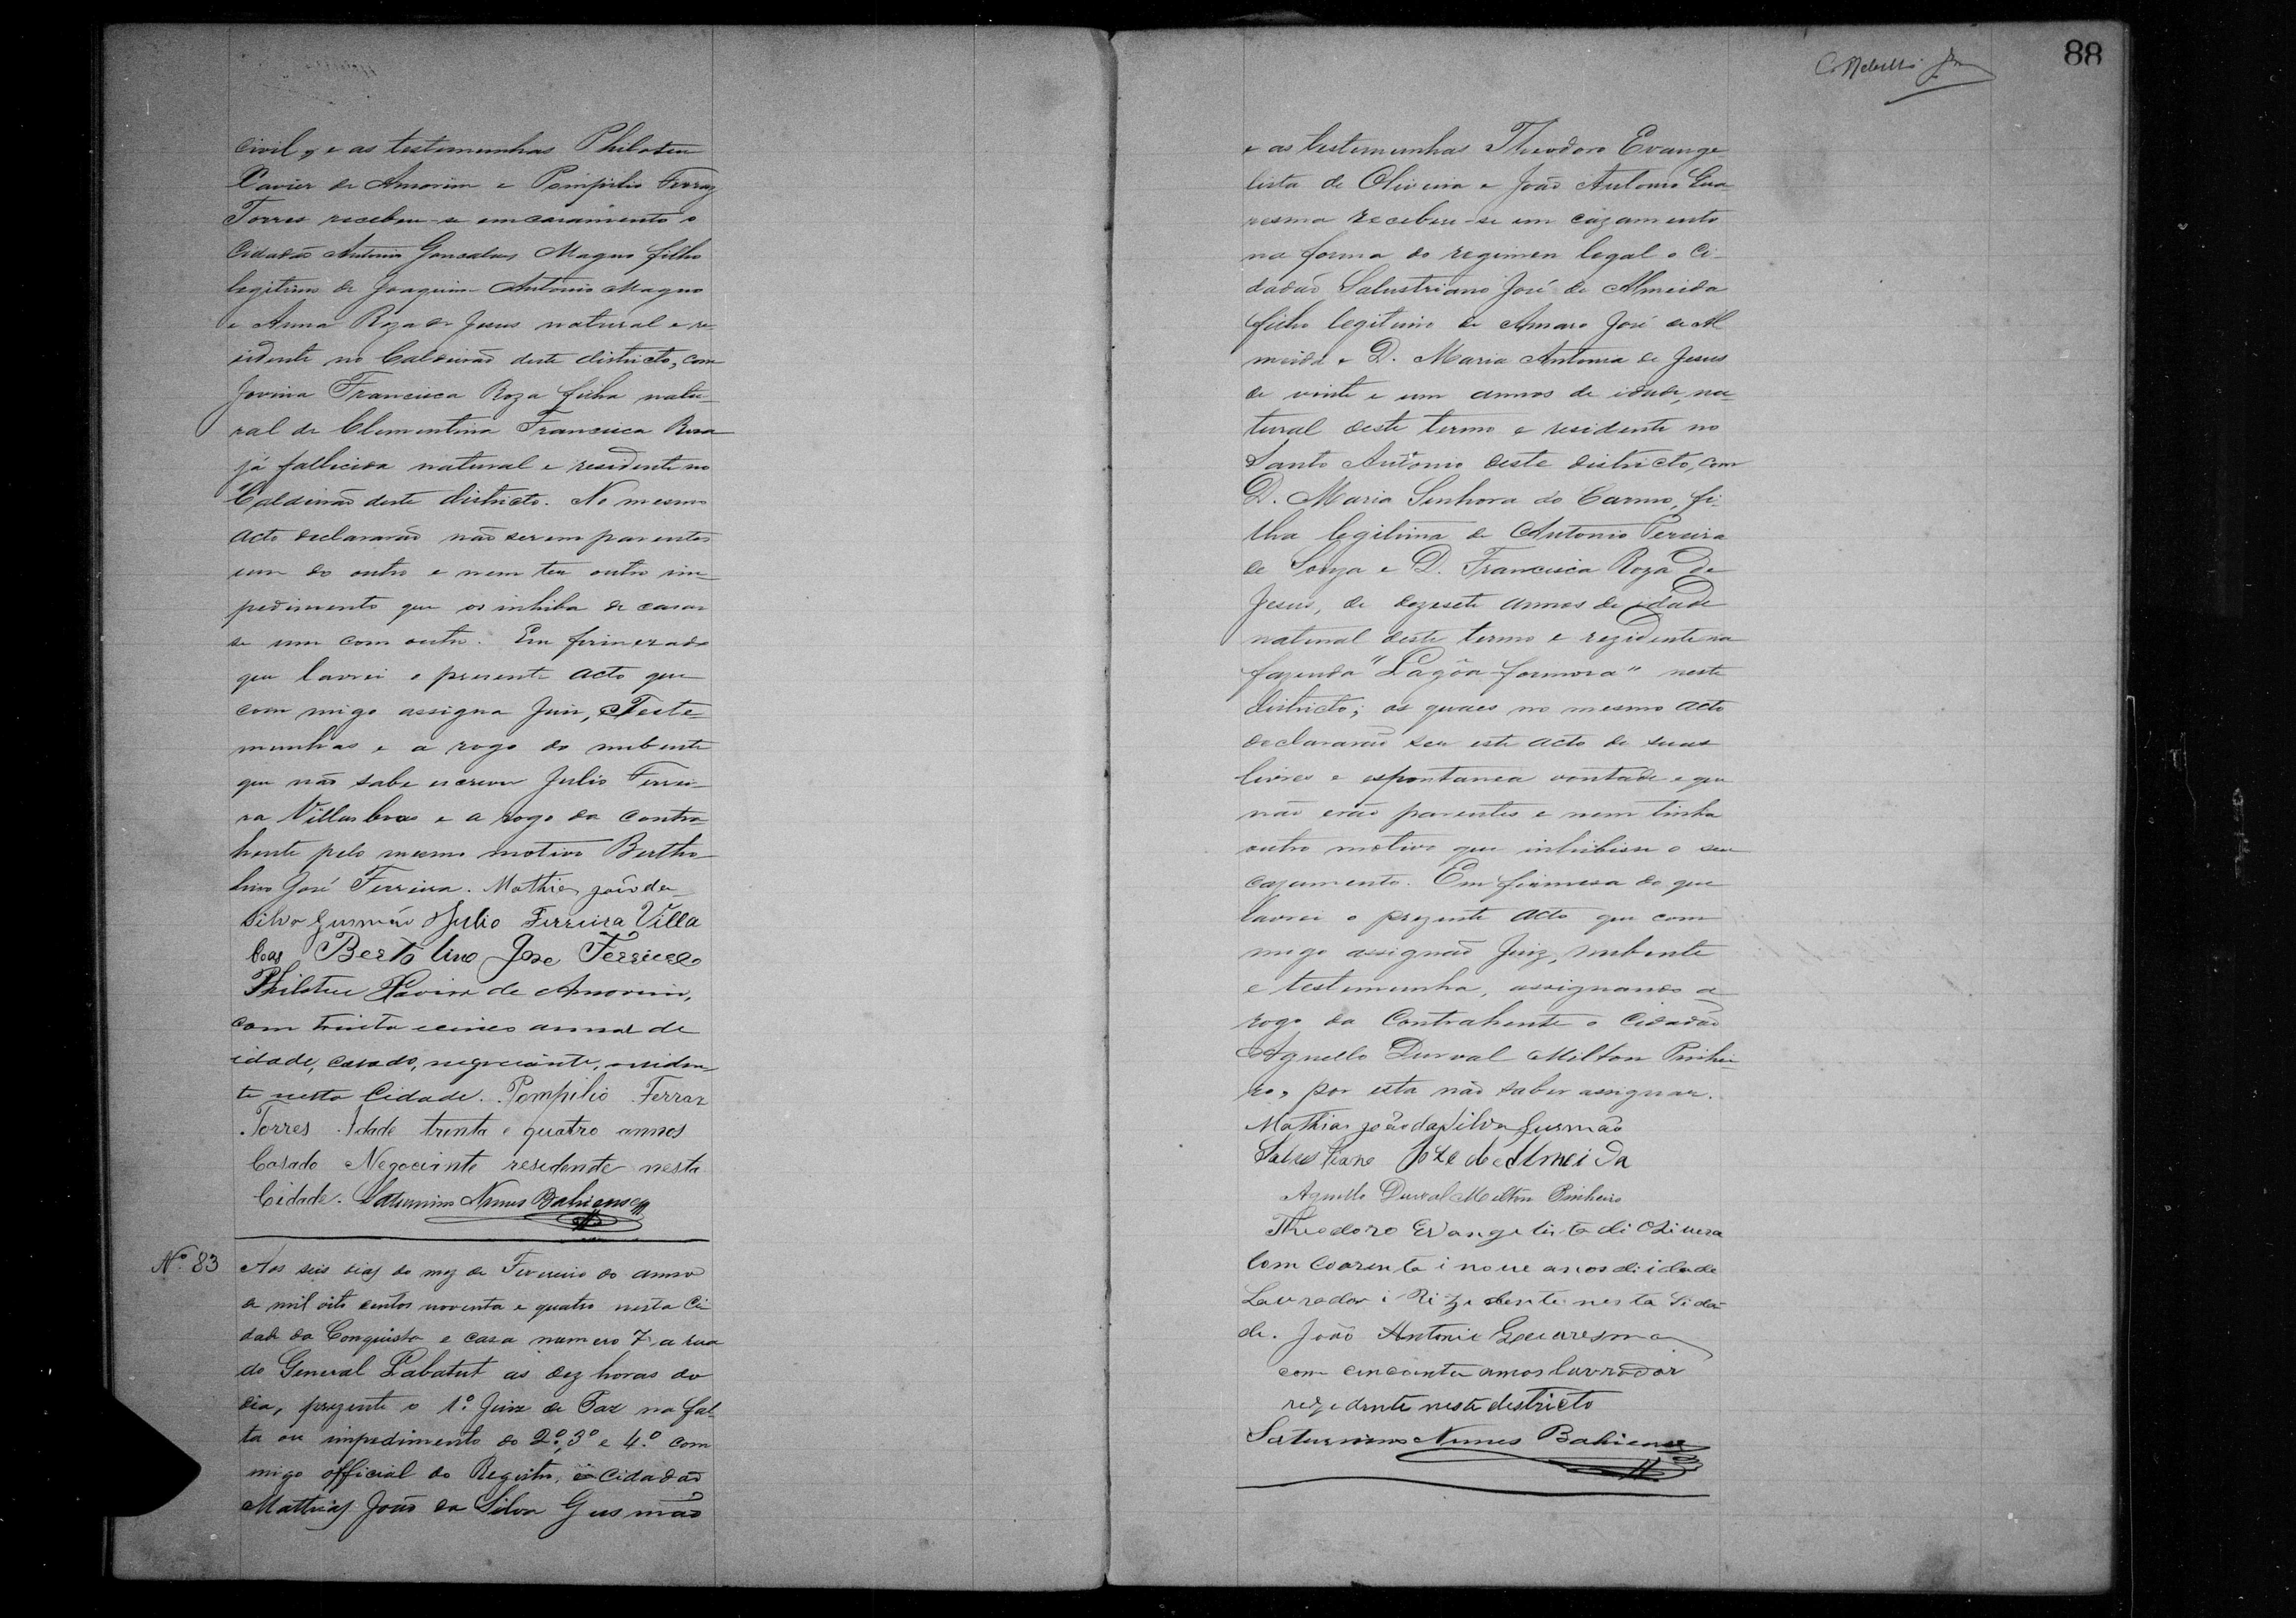 civil, e as testemunhas Philoteu
Xavier de Amorim e Pompilio Ferraz
Torres recebeu-se em casamento o
Cidadão Antonio Gonsalves Magno filho
legitimo de Joaquim Antonio Magno
e Anna Roza de Jesus natural e re-
sidente no Caldeirão deste districto, com
Jovina Francisca Roza filha natu-
ral de Clementina Francisca Rosa
já fallicida natural e residente no
Caldeirão deste districto. No mesmo
acto declararão não serem parentes
um do outro e nem ter outro im-
pedimento que os inhiba de casar
se um com outro. Em firmeza do
que lavrei o presente acto que
com migo assigna Juiz, Teste-
munhas e a rogo do nubente
que não sabe escrever Julio Ferrei-
ra Villasboas e a rogo da contra-
hente pelo mesmo motivo Bertho-
lino José Ferreira. Mathias João da
Silva Gusmão Julio Ferreira Villa
boas Bertolino Jose Ferreira
Philoteu Xavier de Amorim,
com trinta e cinco annos de
idade, casado, negociante, residen-
te nesta Cidade. Pompilio Ferraz
Torres Idade trinta e quatro annos
Casado Negociante residente nesta
Cidade. Saturnino Nunes Bahiense
Nº 83
Aos seis dias do mez de Fevereiro do anno
de mil oito centos noventa e quatro nesta Ci
dade da Conquista e casa numero 7 a rua
do General Labatut as dez horas do
dia, prezente o 1º Juiz de Paz na fal-
ta ou impedimento do 2º, 3º e 4º com
migo official do Registro, o Cidadão
Mathias João da Silva Gusmão
88
e as testemunhas Theodoro Evange
lista de Oliveira e João Antonio Qua
resma recebeu-se em cazamento
na forma do regimen legal o Ci-
dadão Salustriano José de Almeida
filho legitimo de Amaro José de Al
meida e D. Maria Antonia de Jesus
de vinte e um annos de idade, na-
tural deste termo e residente no
Santo Antonio deste districto, com
D. Maria Senhora do Carmo, fi-
lha legitima de Antonio Pereira
de Souza e D. Francisca Roza de
Jesus, de dezesete annos de idade
natural deste termo e rezidente na
fazenda "Lagôa formosa" neste
districto; os quaes no mesmo acto
declararão ser este acto de suas
livres e espontanea vontade e que
não erão parentes e nem tinha
outro motivo que inhibisse o seu
cazamento. Em firmesa do que
lavrei o prezente acto que com
migo assignão Juiz, nubente
e testemunha, assignando a
rogo da Contrahente o Cidadão
Agnello Durval Milton Pinhei-
ro, por esta não saber assignar.
Mathias João da Silva Gusmão
Salustiano Joze de Almeida
Agnello Durval Milton Pinheiro
Theodoro Evangelista di Oliveira
Com coarenta i nove anos di idade
Lavrador i Rizedente nesta Sida
de. João Antonio Quaresma
com cincoenta annos lavrador
rezedente neste destricto
Saturnino Nunes Bahiense